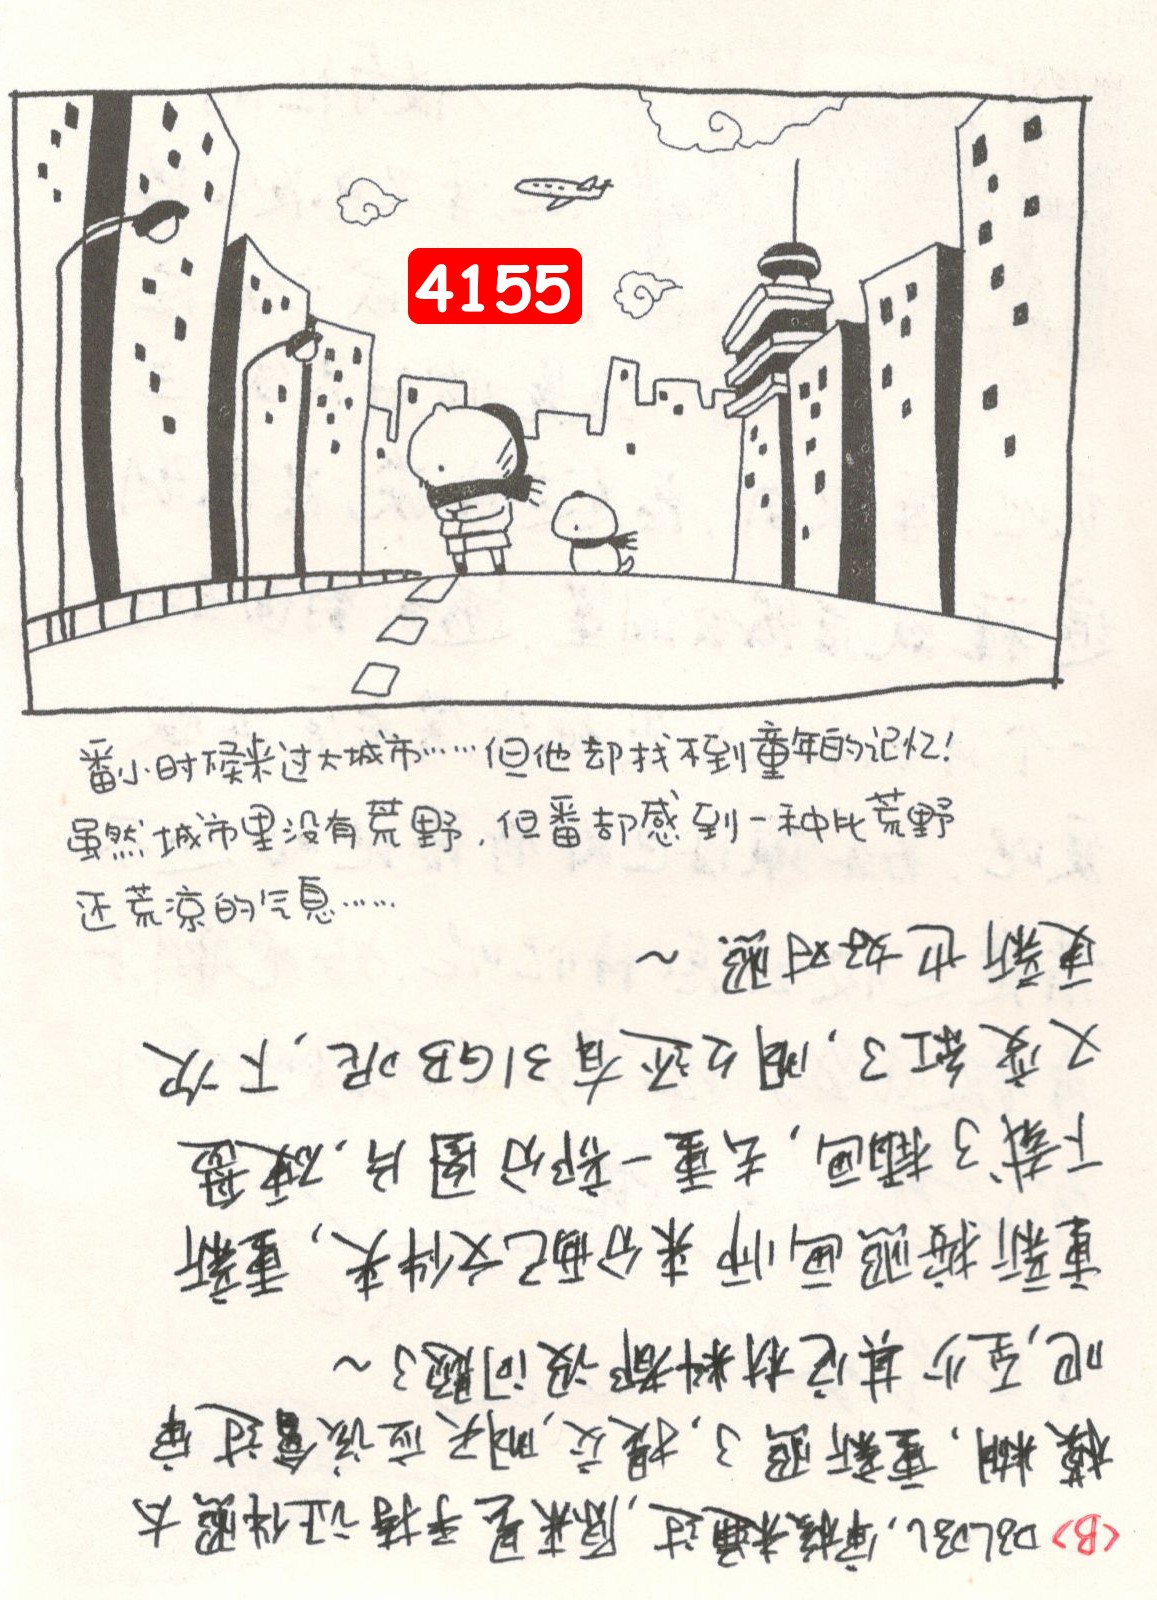 4155
番小时候来过大城市……但他却找不到童年的记忆!
虽然城市里没有荒野,但番却感到一种比荒野
还荒凉的气息……
<B> D8LD8L,审核未通过,原来是手持证件照太
模糊,重新照了,提交,明天应该会过审
吧,至少其它材料都没问题了~
重新按照画师来分配文件夹,重新
下载了插画,去重一部分图片,硬盘
又变红了,明明还有31GB呢,下次
更新也好对照~